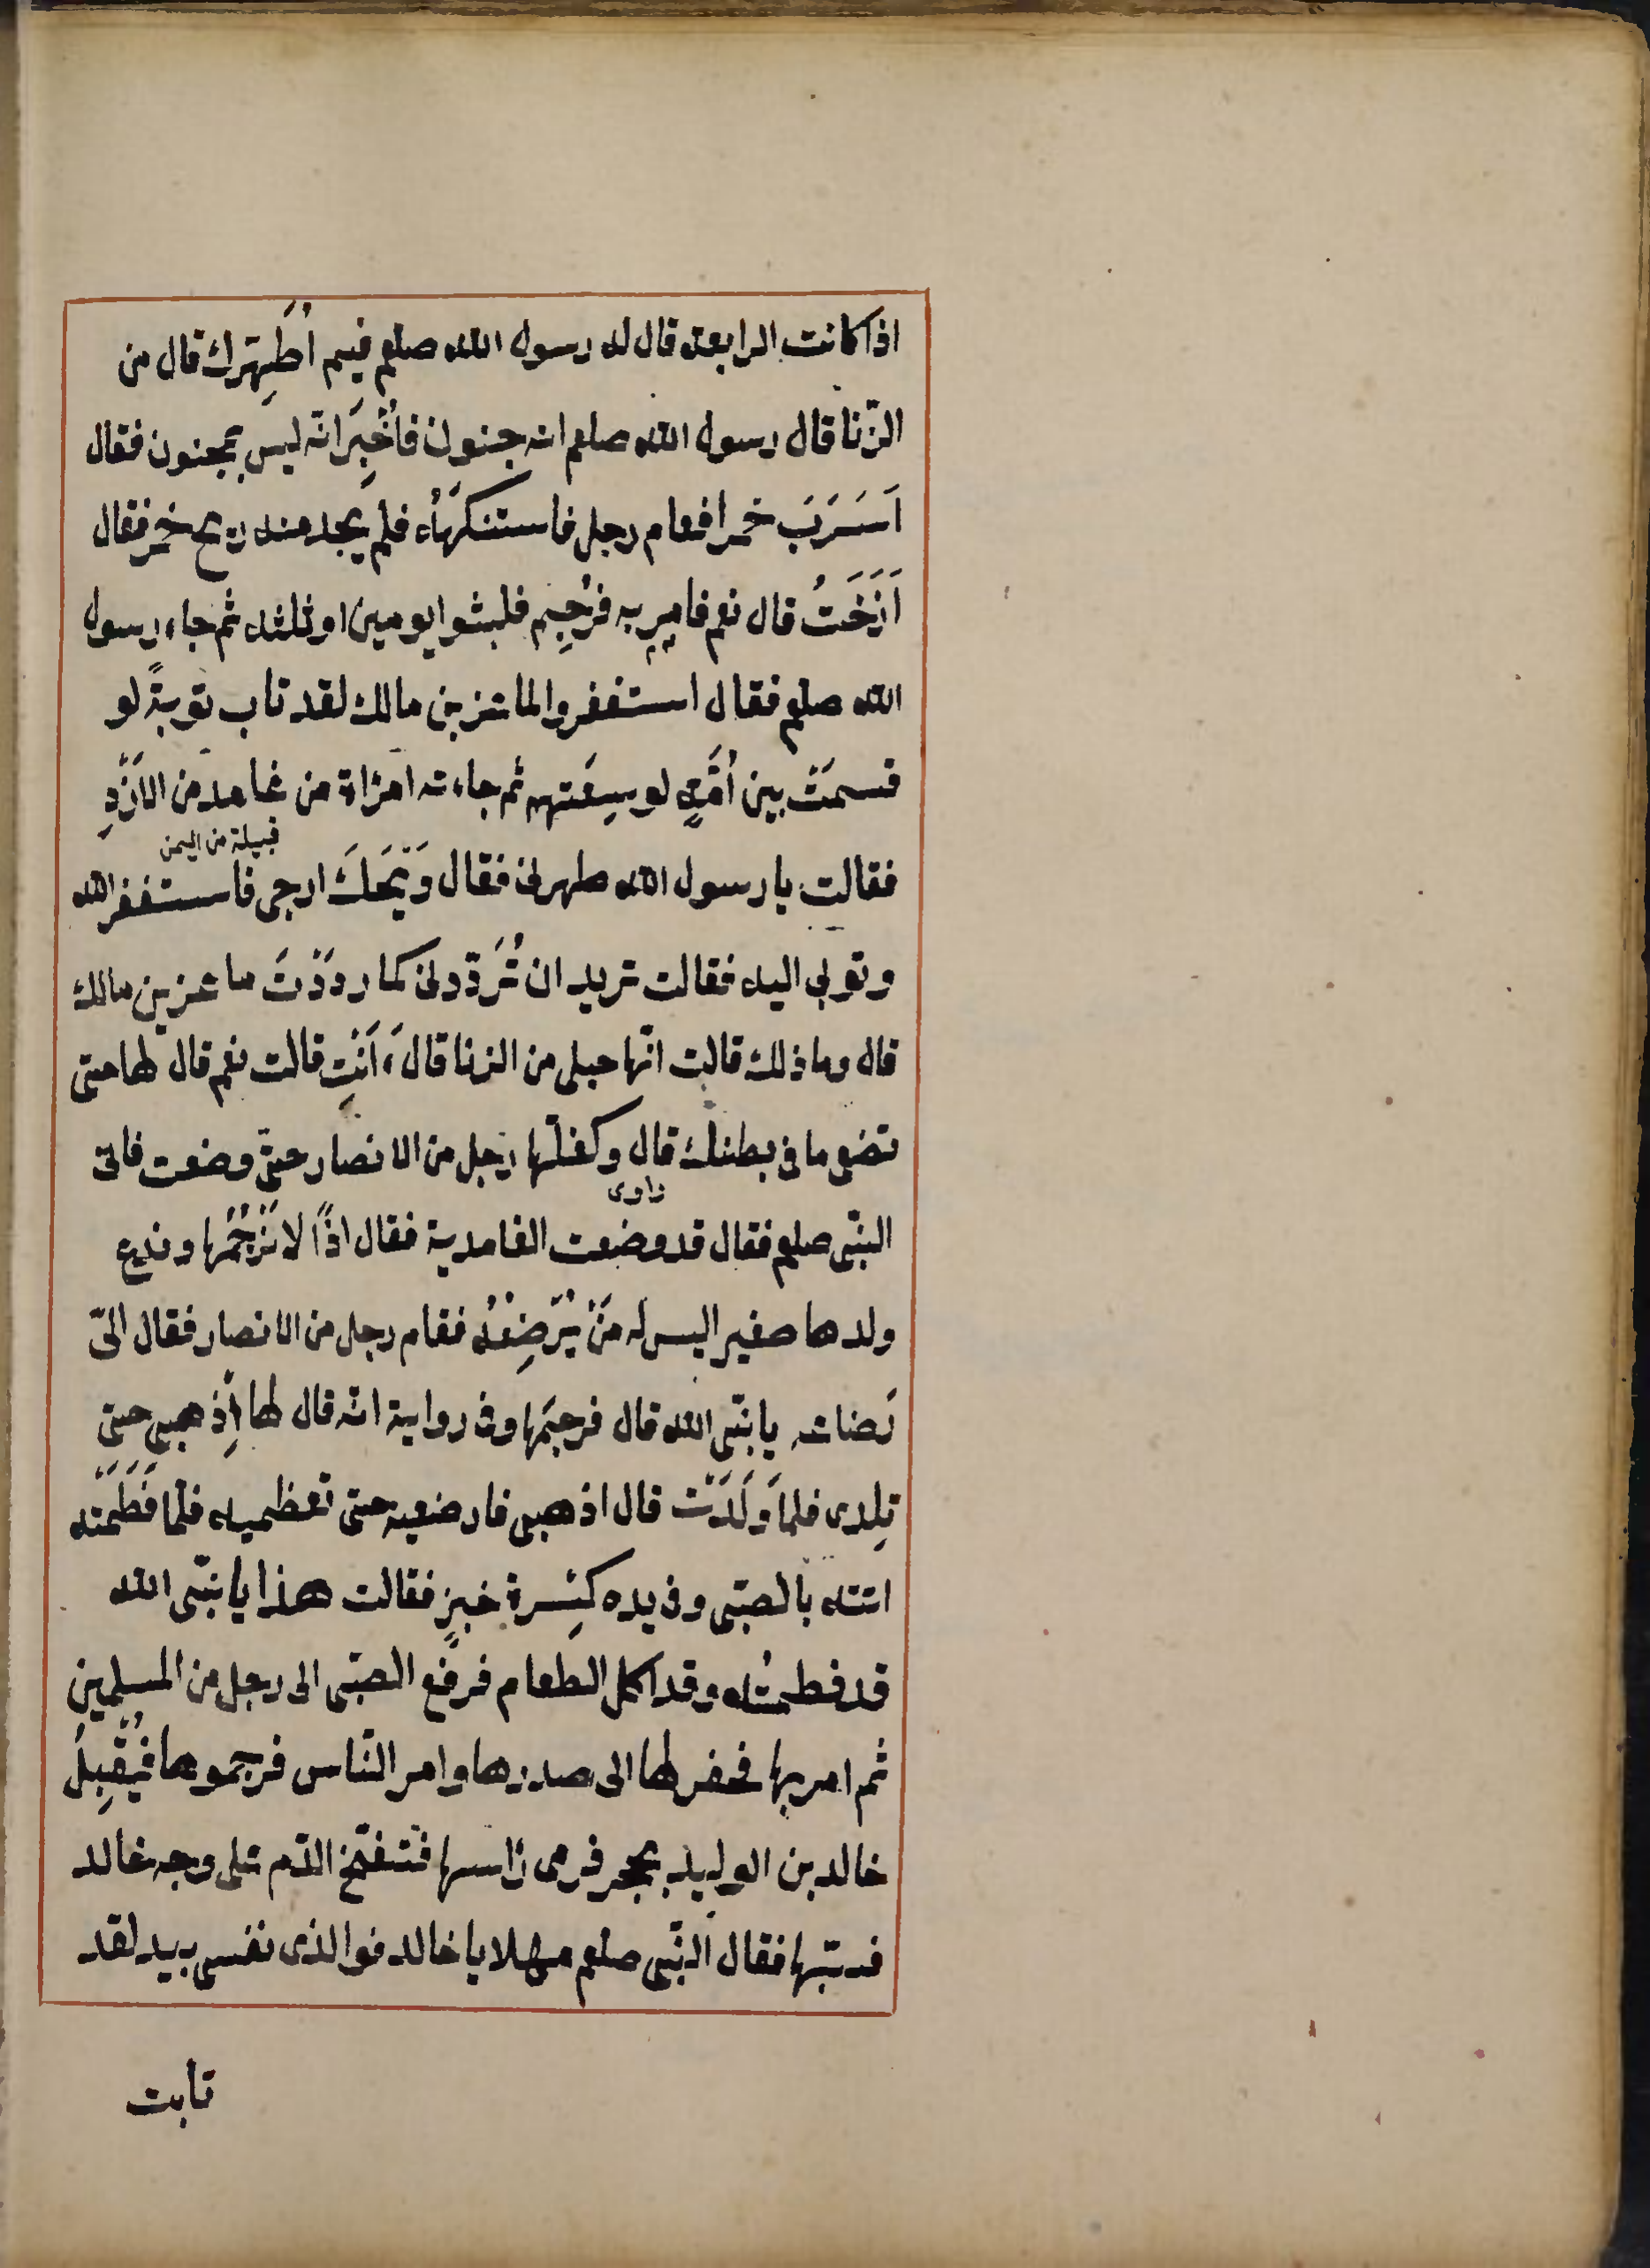 اذا كانت الرابعة قال له رسول الله صلعم فيم اُطَهِّرك قال من
الزّنا قال رسول الله صلعم انه جنون فأُخْبِرَ انّه ليس بمجنون فقال
اَشَرَبَ خمرا فقام رجل فاستنكَهَهُ فلم يجد منه ريح خمر فقال
اَزَنَيْتَ قال نعم فامر به فرُجِم فلبثوا يومين او ثلثه ثم جاء رسول
الله صلعم فقال استغفروا لماعز بن مالك لقد تاب توبةً لو
قسمَتْ بين اُمّةٍ لوسِعَتهم ثم جاءته امْرَاة من غامد من الاَزْدِ
قبيلة من اليمن
فقالت يا رسول الله طهرنى فقال وَيْحَكَ ارجى فاستغفر الله
وتوبى اليه فقالت تريد ان تُرَدّدنى كما ردَدْتَ ماعز بن مالك
قال وما ذلك قالت انّها حبلى من الزنا قال ءَاَنْتِ قالت نعم قال لها حتى
تضعى ما فى بطنك قال وكفلّها رجل من الانصار حتىّ وضعت فاتى
راوى
النبّى صلعم فقال قد وضعت الغامدية فقال اذًا لا نَرْجُمُها وندع
ولدها صغير اليس له مَنْ يُرْضِعُهُ فقام رجل من الانصار فقال الىّ
رَضاعه يا نبّى الله قال فرجمَها وفى رواية انه قال لها اِذهبى حتى
تلِدى فلما وَلَدَتْ قال اذهبى فارضعيه حتى تعظميه فلمّا فَطَمَتْه
اتته بالصبّى وفى يده كِسْرة خبزٍ فقالت هذا يا نبّى الله
قد فطمتُه وقد اكل الطعام فرفع الصبّى الى رجل من المسلمين
ثم امر بها فحفر لها الى صدرها وامر النّاس فرجموها فيُقْبِلُ
خالد بن الوليد بحجر فرمى رأسها فتنضّخ الدّم على وجه خالد
فسّبها فقال النبّى صلعم مهلا يا خالد فوالذى نفسى بيد لقد
تابت